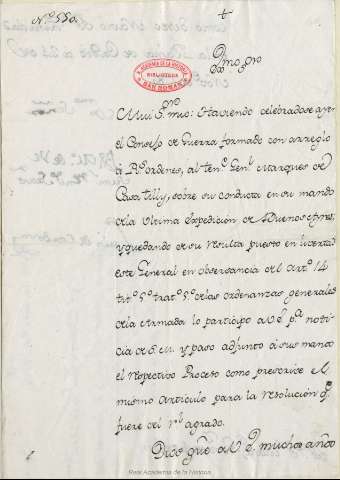 N.º 550.
+
Exmo. Sor.
R. ACADEMIA DE LA HISTORIA
BIBLIOTECA
SAN ROMAN
Mui Sor. mio: Haviendo celebradose ayer
el Consejo de Guerra formado con arreglo
à Rs. ordenes, al tente. Genl. Marques de
Casa Tilly, sobre su conducta en su mando
de la Ultima Expedicion de Buenos Ayres,
y quedando de su resulta puesto en livertad
este General en observancia del Arto. 14
tito. 5º tratº. 5º de las ordenanzas generales
de la Armada lo participo a V.E. pª noti-
cia de S.M. y paso adjunto à sus manos
el respectivo Proceso como prescrive el
mismo Articulo para la resolucion qe.
fuere del Rl. agrado.
Dios gue. a V.E. muchos años
Real Academia de la Historia